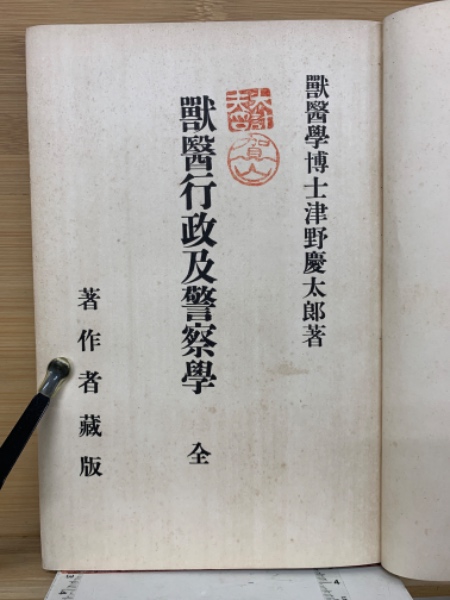 獸醫學博士津野慶太郎著
獸醫行政及警察學 全
著作者藏版